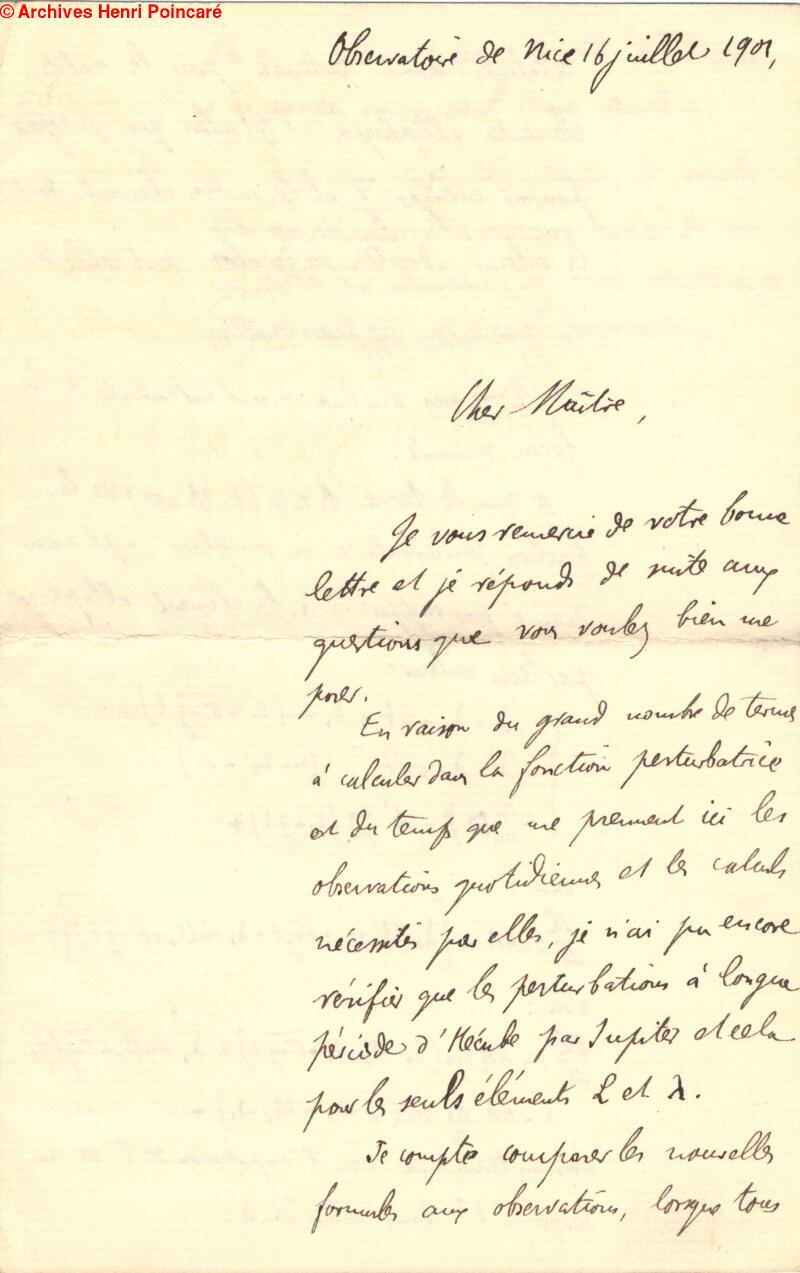 © Archives Henri Poincaré
Observatoire de Nice 16 juillet 1901,
Cher Maître,
Je vous remercie de votre bonne
lettre et je réponds de suite aux
questions que vous voulez bien me
poser.
En raison du grand nombre de termes
à calculer dans la fonction perturbatrice
et du temps que me prennent ici les
observations quotidiennes et les calculs
nécessités par elles, je n'ai pu encore
vérifier que les perturbations à longue
période d'Hécube par Jupiter et cela
pour les seuls éléments L et λ.
Je compte comparer les nouvelles
formules aux observations, lorsque tous